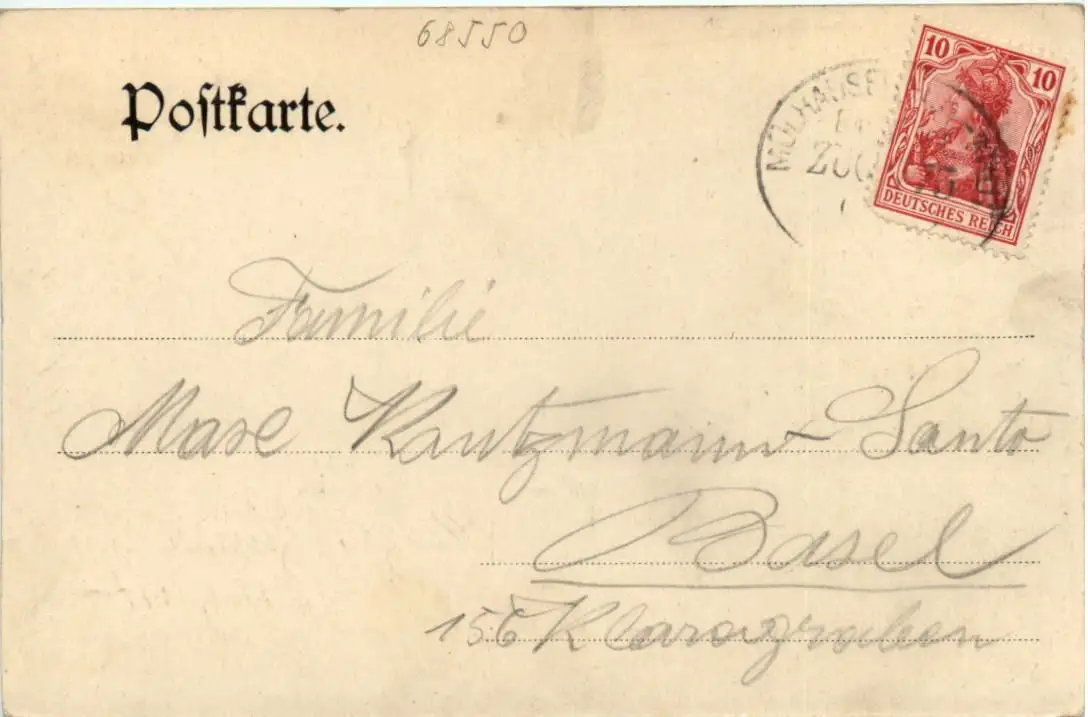 68550
Postkarte.
10 10
DEUTSCHES REICH
MÜLHAUSE
ZUG
Familie
Kautzmann-Santo
Basel
156 Klaragraben